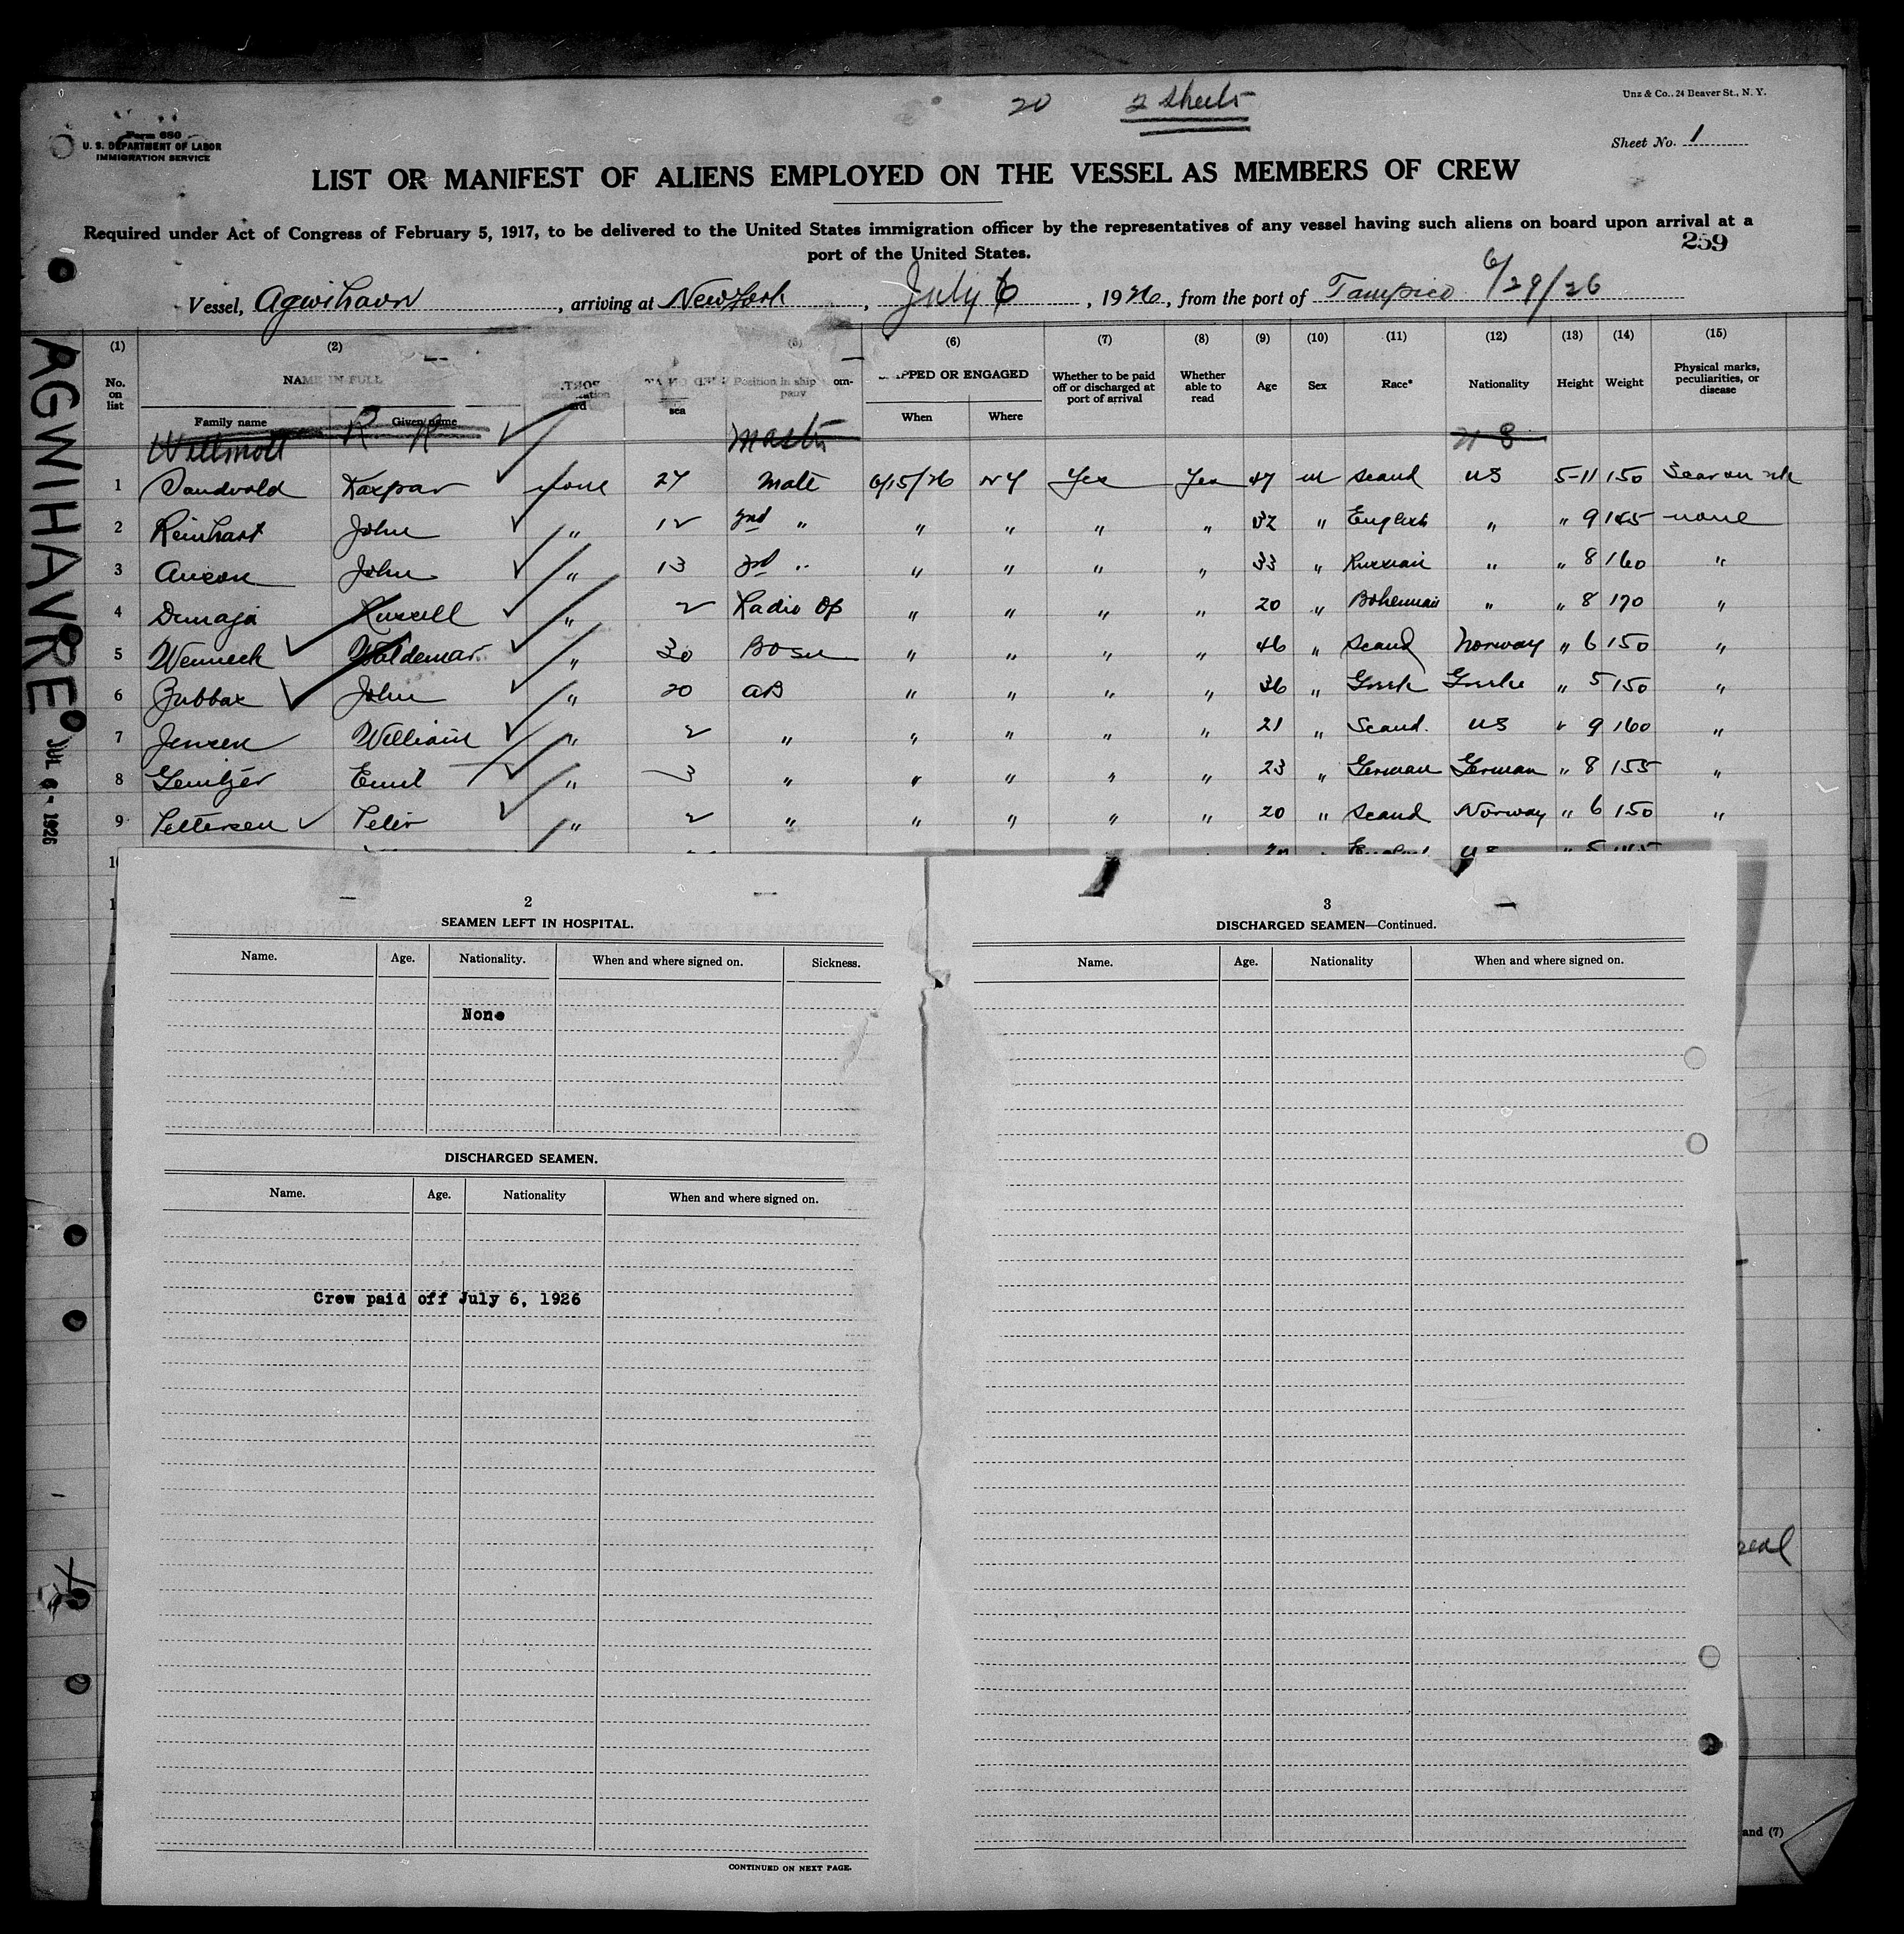 20 2 sheets
Unz & Co., 24 Beaver St., N. Y.
Form 680
U. S. DEPARTMENT OF LABOR
IMMIGRATION SERVICE
Sheet No. 1
LIST OR MANIFEST OF ALIENS EMPLOYED ON THE VESSEL AS MEMBERS OF CREW
Required under Act of Congress of February 5, 1917, to be delivered to the United States immigration officer by the representatives of any vessel having such aliens on board upon arrival at a
port of the United States.
259
Vessel, Agwihavre, arriving at New York, July 6, 1926, from the port of Tampico 6/29/26
AGWIHAVRE
JUL 6 - 1926
(1) (2) (5) (6) (7) (8) (9) (10) (11) (12) (13) (14) (15)
No. on list NAME IN FULL Position in ship SHIPPED OR ENGAGED Whether to be paid off or discharged at port of arrival Whether able to read Age Sex Race* Nationality Height Weight Physical marks, peculiarities, or disease
Family name Given name sea When Where
Willmott R R Master
1 Sandvold Kaspar none 27 Mate 6/15/26 NY Yes Yes 47 m Scand US 5-11 150 Scar on
2 Reinhart John " 12 2nd " " " " " 32 " English " " 9 145 none
3 John " 13 3rd " " " " " 33 " Russian " " 8 160 "
4 Russell " 2 Radio Op " " " " 20 " Bohemian " " 8 170 "
5 Wenneck Waldemar " 30 Bosn " " " " 46 " Scand Norway " 6 150 "
6 John " 20 AB " " " " 36 " Greek Greece " 5 150 "
7 Jensen William " 2 " " " " " 21 " Scand. US " 9 160 "
8 Emil " 3 " " " " " 23 " German German " 8 155 "
9 Pettersen Peter " 2 " " " " " 20 " Scand Norway " 6 150 "
2
SEAMEN LEFT IN HOSPITAL.
Name. Age. Nationality. When and where signed on. Sickness.
None
DISCHARGED SEAMEN.
Name. Age. Nationality When and where signed on.
Crew paid off July 6, 1926
CONTINUED ON NEXT PAGE.
3
DISCHARGED SEAMEN—Continued.
Name. Age. Nationality When and where signed on.
and (7)